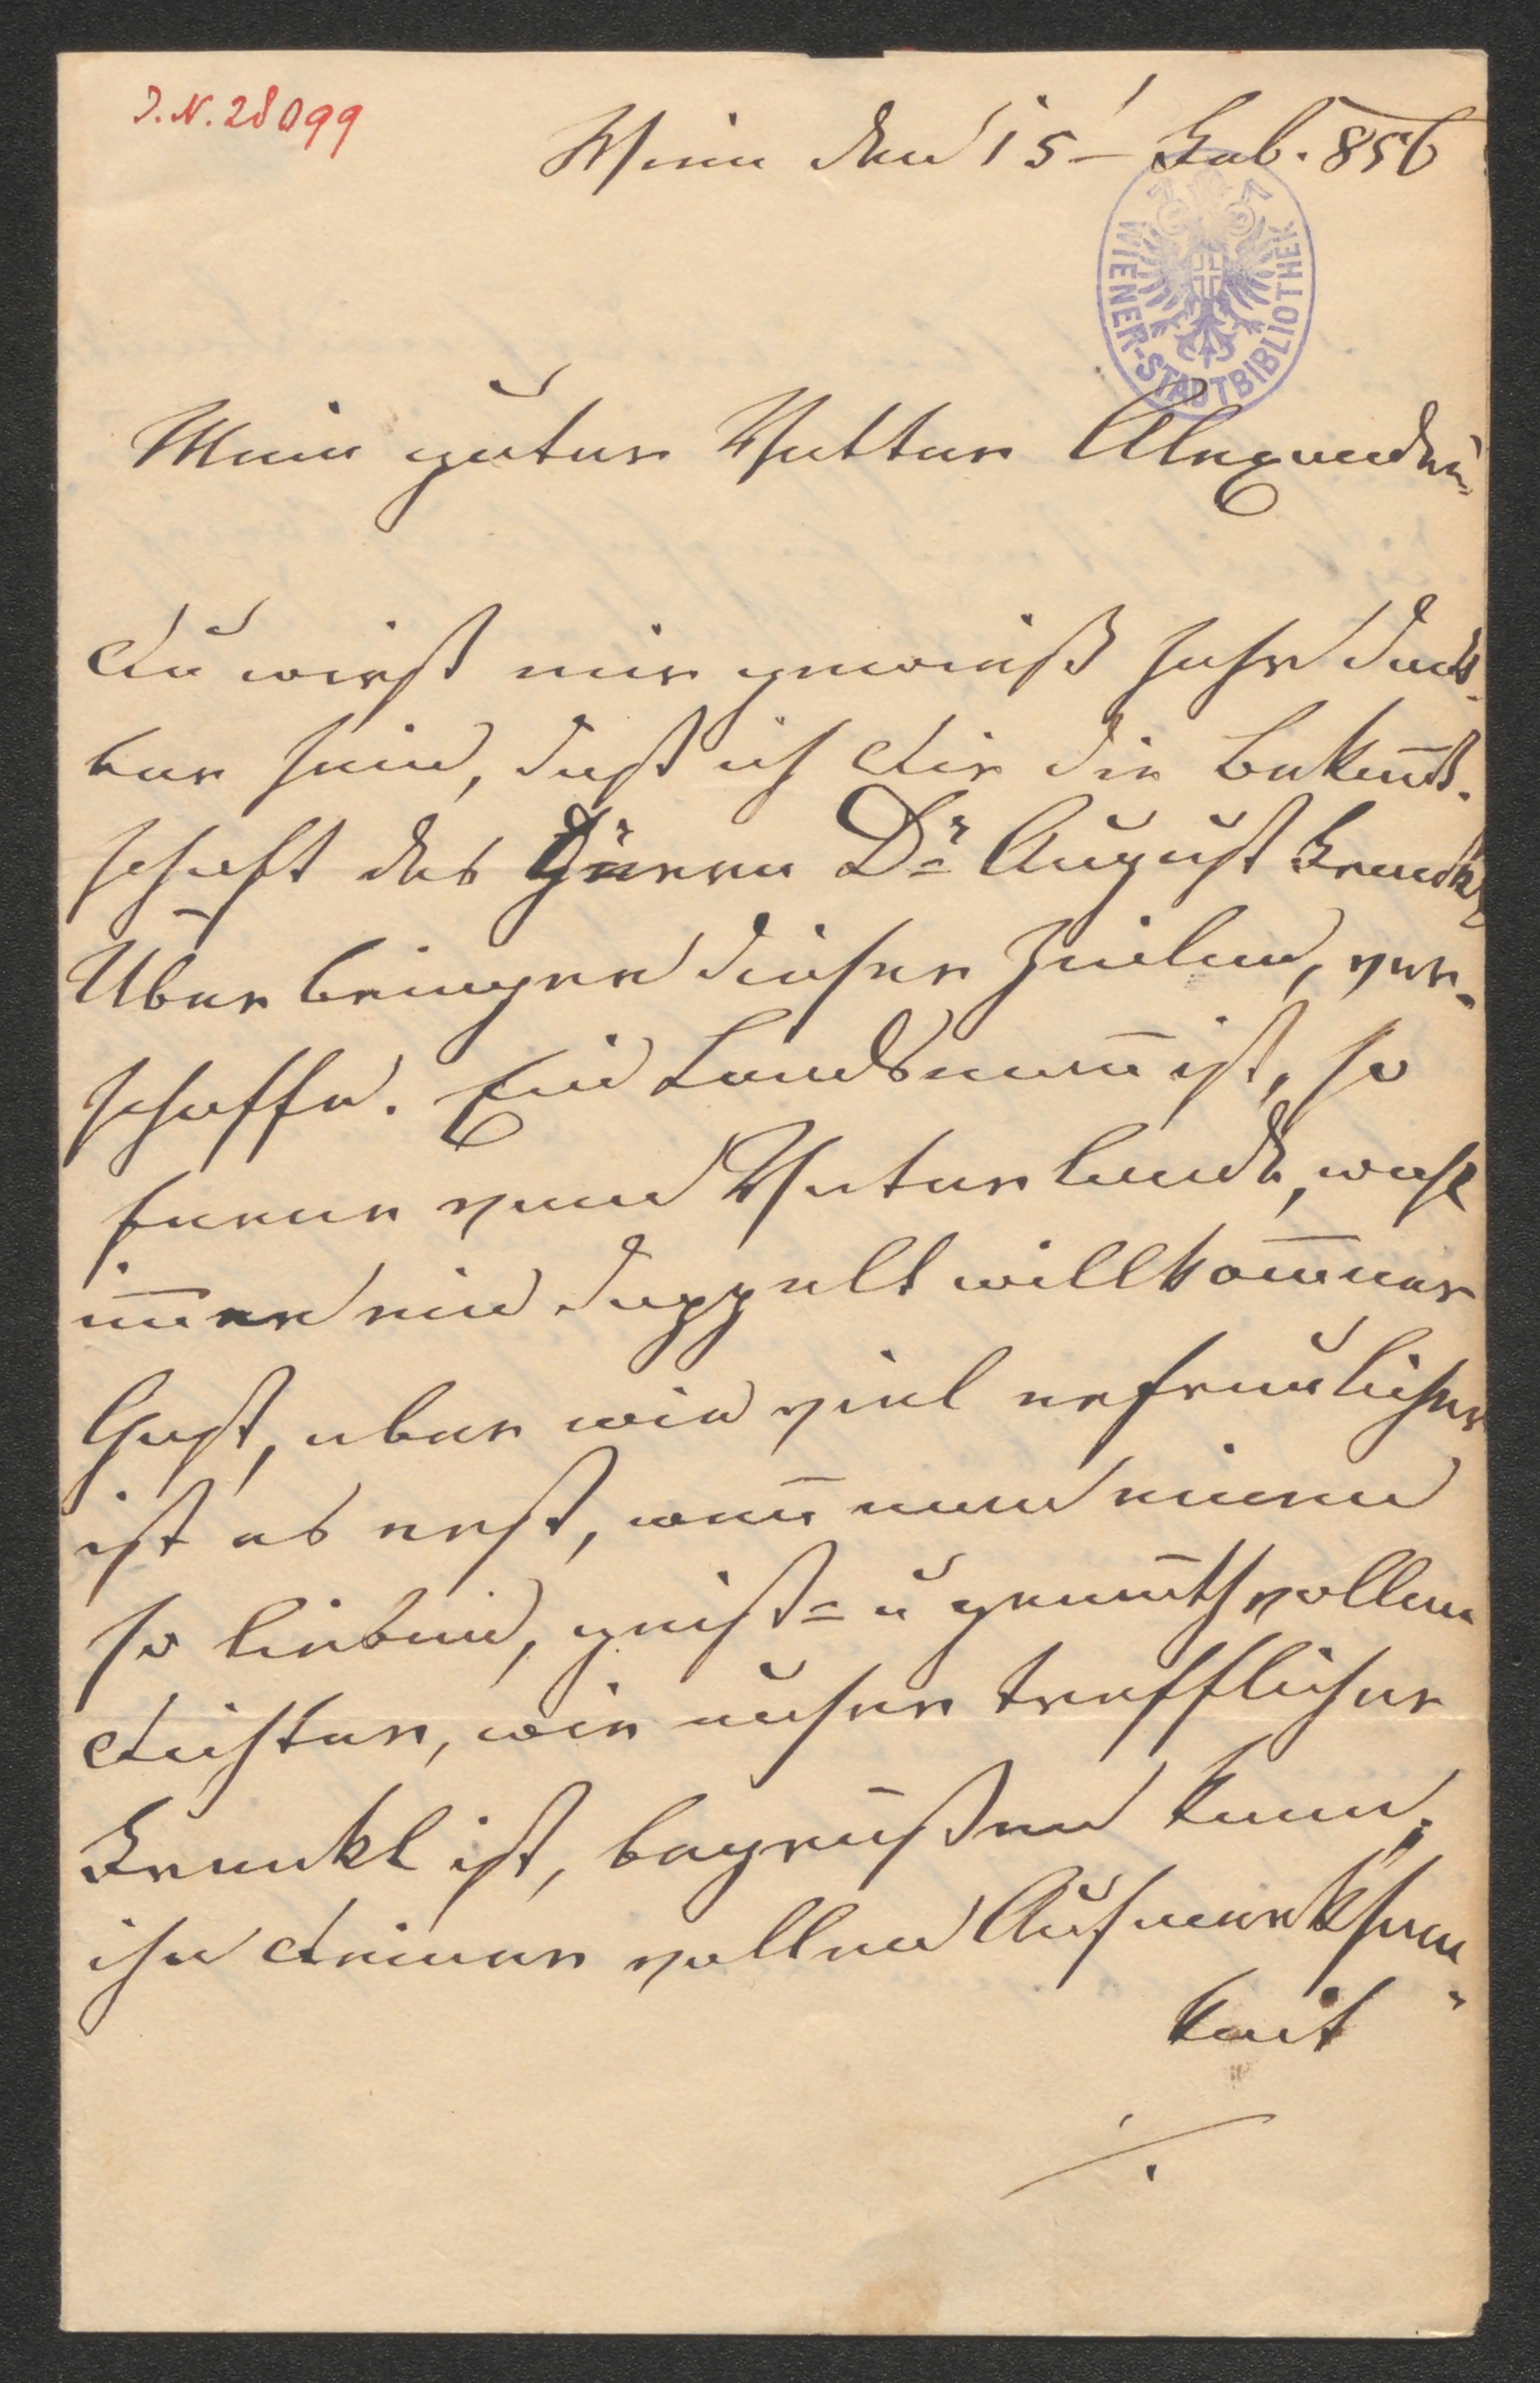 J. N. 28099
Wien den 15 – Feb. 856
WIENER-STADTBIBLIOTHEK
Mein guter Vetter Alexander!
Du wirst mir gewiß sehr dank-
bar sein, daß ich Dir die Bekañt-
schaft des Herrn Dr August Frankl
Überbringer dieser Zeilen, ver-
schaffe. Ein Landsmañ ist, so
ferne vom Vaterlande, wohl
im̅er ein doppelt willkom̅ener
Gast, aber wie viel erfreulicher
ist es erst, wen̅ man einen
so lieben, geist- u gemüthvollen
Dichter, wie unser trefflicher
Frankl ist, begrüßen kann.
ihn Deiner vollen Aufmerksam-
keit
./.